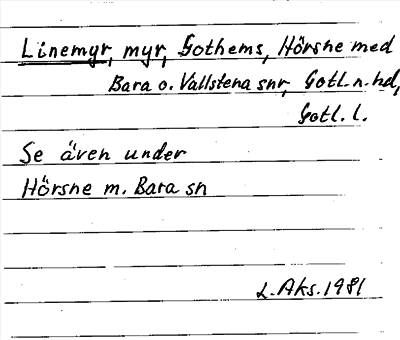 Linemyr, myr, Gothems, Hörsne med
Bara o. Vallstena snr, Gotl. n. hd,
Gotl. l.
Se även under
Hörsne m. Bara sn
L. Aks. 1981